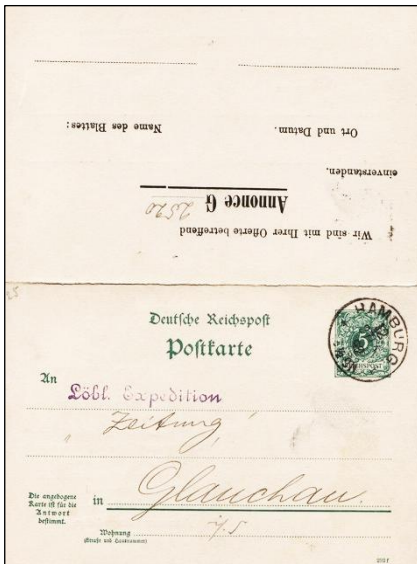 Wir sind mit Ihrer Offerte betreffend
2570
Annonce G
einverstanden.
Ort und Datum.
Name des Blattes:
Deutsche Reichspost
Postkarte
HAMBURG
5
REICHSPOST
An
Löbl. Expedition
Zeitung
in Glauchau.
Die angebogene
Karte ist für die
Antwort
bestimmt.
Wohnung
(Straße und Hausnummer)